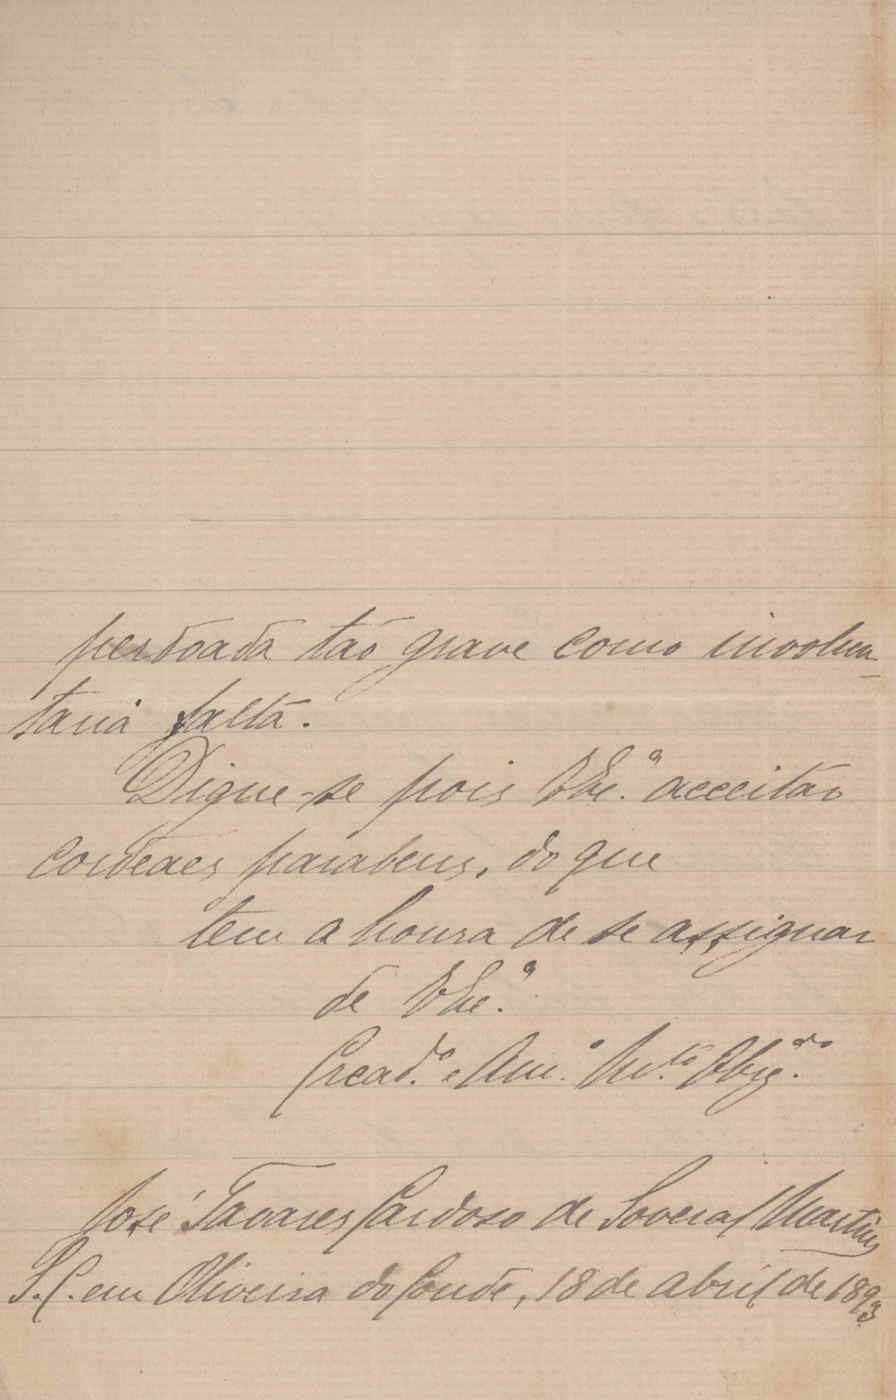 perdoada tão grave como involun-
taria falta.
Digne-se pois V Exc.ª acceitar
cordeaes parabens, do que
tem a honra de se assignar
de V Exc.ª
Cread.º e Am.º M.to Obrig.do
José Tavares Cardoso de Soveral Martins
S. C. em Oliveira do Conde, 18 de abril de 1893